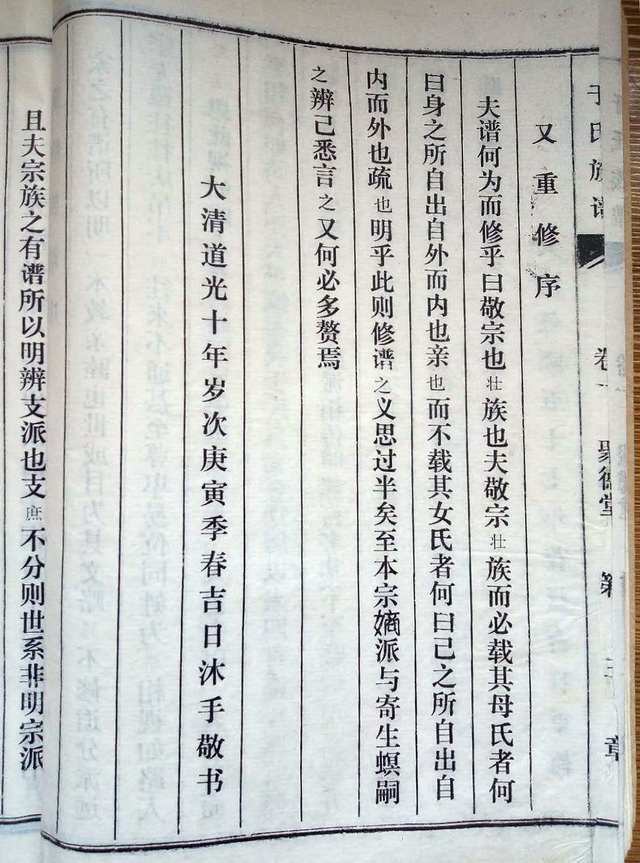 于氏族谱 卷一 聚德堂
又重修序
夫谱何为而修乎曰敬宗也壮族也夫敬宗壮族而必载其母氏者何
曰身之所自出自外而内也亲也而不载其女氏者何曰己之所自出自
内而外也疏也明乎此则修谱之义思过半矣至本宗嫡派与寄生螟嗣
之辨己悉言之又何必多赘焉
大清道光十年岁次庚寅季春吉日沐手敬书
且夫宗族之有谱所以明辨支派也支庶不分则世系非明宗派